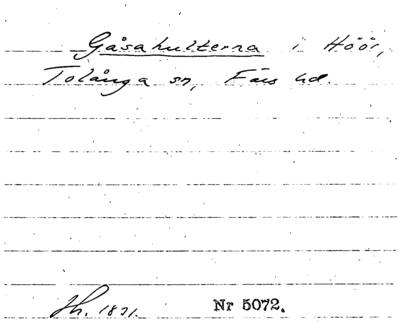 Gåsahulterna i Höör,
Tolånga sn, Färs hd.
Hh. 1831. Nr 5072.